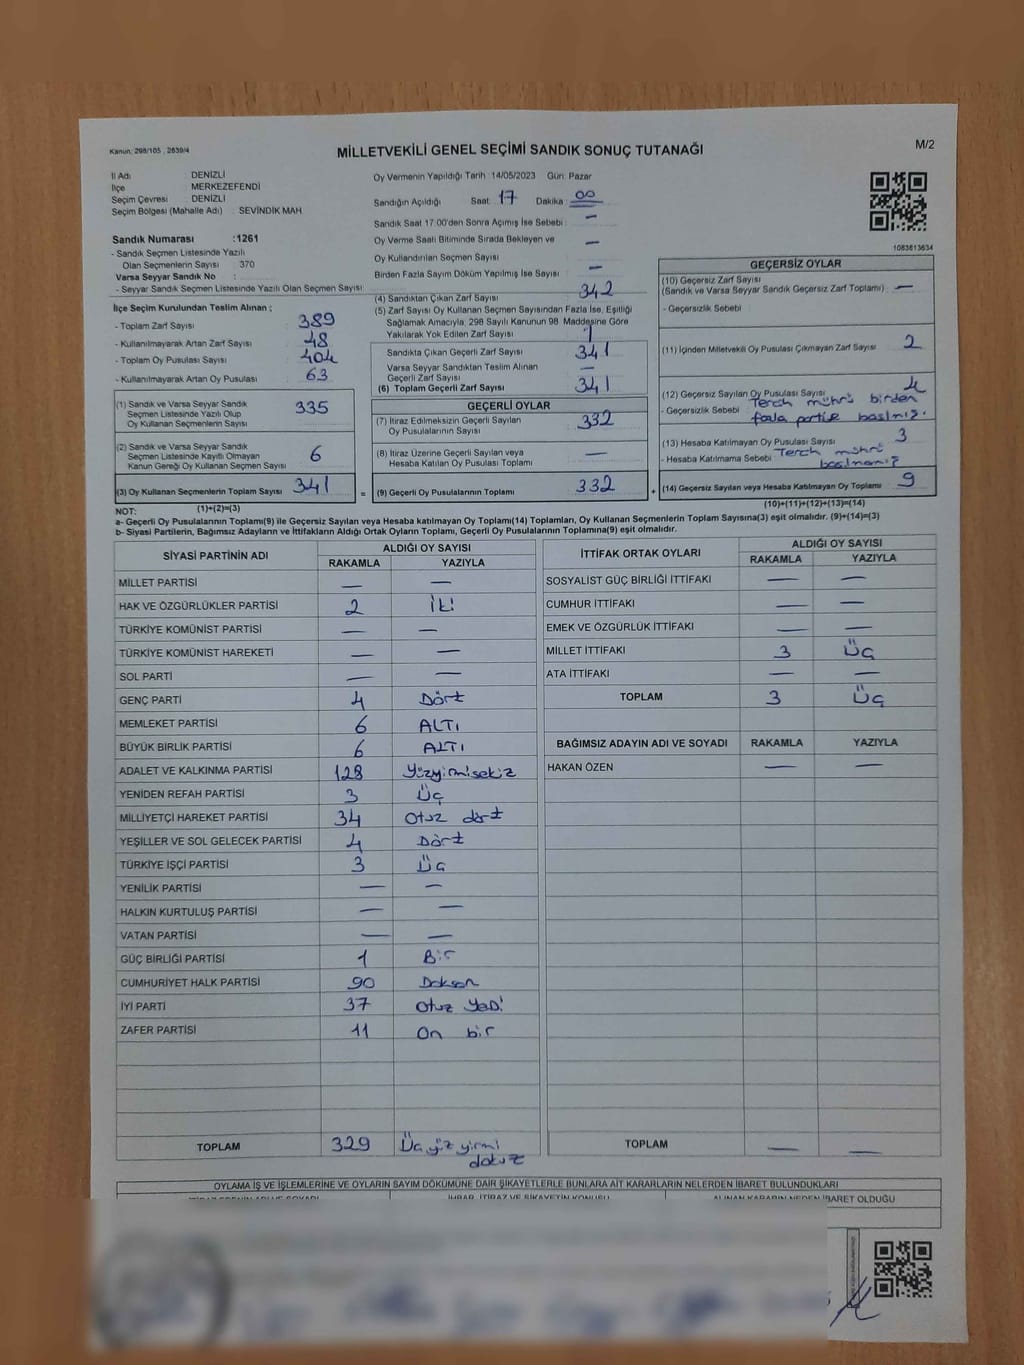 Kanun: 298/105 , 2839/4
MİLLETVEKİLİ GENEL SEÇİMİ SANDIK SONUÇ TUTANAĞI
M/2
İl Adı DENİZLİ
İlçe MERKEZEFENDİ
Seçim Çevresi DENİZLİ
Seçim Bölgesi (Mahalle Adı) : SEVİNDİK MAH
Oy Vermenin Yapıldığı Tarih :14/05/2023 Gün: Pazar
Sandığın Açıldığı Saat : 17 Dakika : 00
Sandık Saat 17.00'den Sonra Açılmış İse Sebebi : —
Oy Verme Saati Bitiminde Sırada Bekleyen ve
Oy Kullandırılan Seçmen Sayısı —
Birden Fazla Sayım Döküm Yapılmış İse Sayısı : —
1083613634
Sandık Numarası :1261
- Sandık Seçmen Listesinde Yazılı
Olan Seçmenlerin Sayısı : 370
Varsa Seyyar Sandık No :
- Seyyar Sandık Seçmen Listesinde Yazılı Olan Seçmen Sayısı:
İlçe Seçim Kurulundan Teslim Alınan ;
- Toplam Zarf Sayısı : 389
- Kullanılmayarak Artan Zarf Sayısı : 48
- Toplam Oy Pusulası Sayısı : 404
- Kullanılmayarak Artan Oy Pusulası : 63
(1) Sandık ve Varsa Seyyar Sandık
Seçmen Listesinde Yazılı Olup
Oy Kullanan Seçmenlerin Sayısı
335
(2) Sandık ve Varsa Seyyar Sandık
Seçmen Listesinde Kayıtlı Olmayan
Kanun Gereği Oy Kullanan Seçmen Sayısı
6
(3) Oy Kullanan Seçmenlerin Toplam Sayısı 341
(1)+(2)=(3)
(4) Sandıktan Çıkan Zarf Sayısı : 342
(5) Zarf Sayısı Oy Kullanan Seçmen Sayısından Fazla İse, Eşitliği
Sağlamak Amacıyla, 298 Sayılı Kanunun 98. Maddesine Göre
Yakılarak Yok Edilen Zarf Sayısı : 1
Sandıkta Çıkan Geçerli Zarf Sayısı : 341
Varsa Seyyar Sandıktan Teslim Alınan
Geçerli Zarf Sayısı : —
(6) Toplam Geçerli Zarf Sayısı : 341
GEÇERLİ OYLAR
(7) İtiraz Edilmeksizin Geçerli Sayılan
Oy Pusulalarının Sayısı : 332
(8) İtiraz Üzerine Geçerli Sayılan veya
Hesaba Katılan Oy Pusulası Toplamı : —
= (9) Geçerli Oy Pusulalarının Toplamı : 332 +
GEÇERSİZ OYLAR
(10) Geçersiz Zarf Sayısı
(Sandık ve Varsa Seyyar Sandık Geçersiz Zarf Toplamı) : —
- Geçersizlik Sebebi :
(11) İçinden Milletvekili Oy Pusulası Çıkmayan Zarf Sayısı : 2
(12) Geçersiz Sayılan Oy Pusulası Sayısı : 4
- Geçersizlik Sebebi : Terch mührü birden
fazla partiye basılmış.
(13) Hesaba Katılmayan Oy Pusulası Sayısı : 3
- Hesaba Katılmama Sebebi : Terch mührü
basılmamış
(14) Geçersiz Sayılan veya Hesaba Katılmayan Oy Toplamı : 9
(10)+(11)+(12)+(13)=(14)
NOT:
a- Geçerli Oy Pusulalarının Toplamı(9) ile Geçersiz Sayılan veya Hesaba katılmayan Oy Toplamı(14) Toplamları, Oy Kullanan Seçmenlerin Toplam Sayısına(3) eşit olmalıdır. (9)+(14)=(3)
b- Siyasi Partilerin, Bağımsız Adayların ve İttifakların Aldığı Ortak Oyların Toplamı, Geçerli Oy Pusulalarının Toplamına(9) eşit olmalıdır.
SİYASİ PARTİNİN ADI ALDIĞI OY SAYISI
RAKAMLA YAZIYLA
MİLLET PARTİSİ — —
HAK VE ÖZGÜRLÜKLER PARTİSİ 2 İki
TÜRKİYE KOMÜNİST PARTİSİ — —
TÜRKİYE KOMÜNİST HAREKETİ — —
SOL PARTİ — —
GENÇ PARTİ 4 Dört
MEMLEKET PARTİSİ 6 ALTI
BÜYÜK BİRLİK PARTİSİ 6 ALTI
ADALET VE KALKINMA PARTİSİ 128 Yüzyirmisekiz
YENİDEN REFAH PARTİSİ 3 Üç
MİLLİYETÇİ HAREKET PARTİSİ 34 Otuz dört
YEŞİLLER VE SOL GELECEK PARTİSİ 4 Dört
TÜRKİYE İŞÇİ PARTİSİ 3 Üç
YENİLİK PARTİSİ — —
HALKIN KURTULUŞ PARTİSİ — —
VATAN PARTİSİ — —
GÜÇ BİRLİĞİ PARTİSİ 1 Bir
CUMHURİYET HALK PARTİSİ 90 Doksan
İYİ PARTİ 37 Otuz Yedi
ZAFER PARTİSİ 11 On bir
TOPLAM 329 Üç yüz yirmi
dokuz
İTTİFAK ORTAK OYLARI ALDIĞI OY SAYISI
RAKAMLA YAZIYLA
SOSYALİST GÜÇ BİRLİĞİ İTTİFAKI — —
CUMHUR İTTİFAKI — —
EMEK VE ÖZGÜRLÜK İTTİFAKI — —
MİLLET İTTİFAKI 3 Üç
ATA İTTİFAKI — —
TOPLAM 3 Üç
BAĞIMSIZ ADAYIN ADI VE SOYADI RAKAMLA YAZIYLA
HAKAN ÖZEN — —
TOPLAM — —
OYLAMA İŞ VE İŞLEMLERİNE VE OYLARIN SAYIM DÖKÜMÜNE DAİR ŞİKAYETLERLE BUNLARA AİT KARARLARIN NELERDEN İBARET BULUNDUKLARI
İHBAR, İTİRAZ VE ŞİKAYETİN KONUSU ALINAN KARARIN NEDEN İBARET OLDUĞU